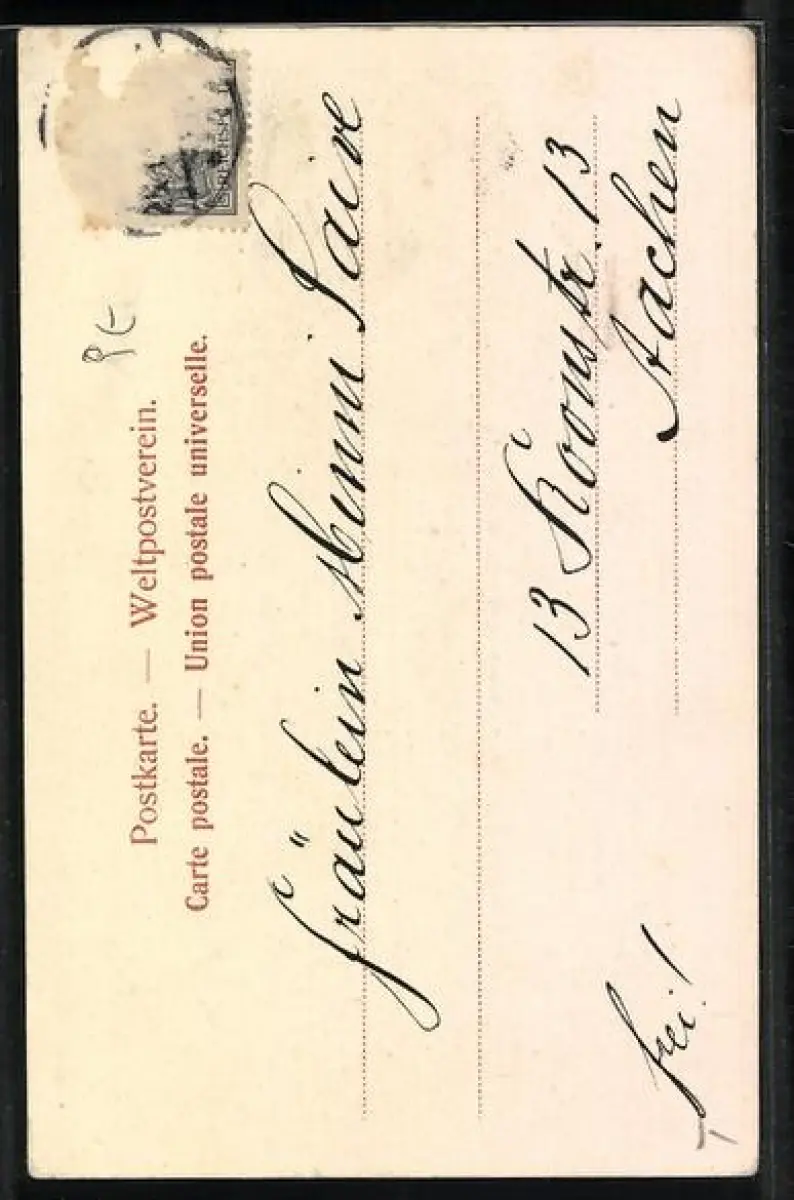 Postkarte. — Weltpostverein.
Carte postale. — Union postale universelle.
Fräulein Minni Paive
13 Roonstr. 13
Aachen
frei!